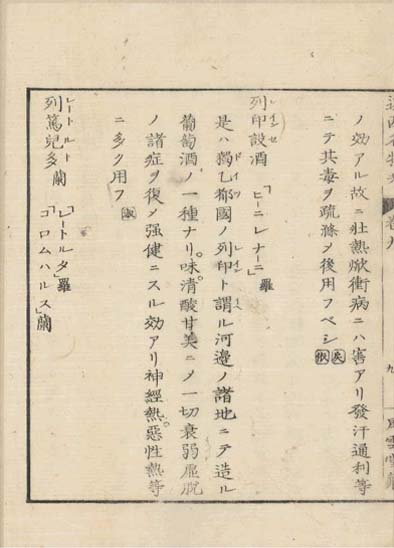 ノ効アル故ニ壮熱焮衝病ニハ害アリ發汗通利等
ニテ其毒ヲ疏滌乄後用フベシ
列印設酒 「ヒーニレナーニ」羅
レインセ
是ハ獨乙都國ノ列印ト謂ル河邉ノ諸地ニテ造ル
ドイツ
レイン
葡萄酒ノ一種ナリ。味清酸甘美ニ乄一切衰弱虚脱
ノ諸症ヲ復乄强健ニスル効アリ神經熱。惡性熱等
ニ多ク用フ
列篤兒多蘭
レートルー
「レートルタ」羅
「コロムハルス」蘭